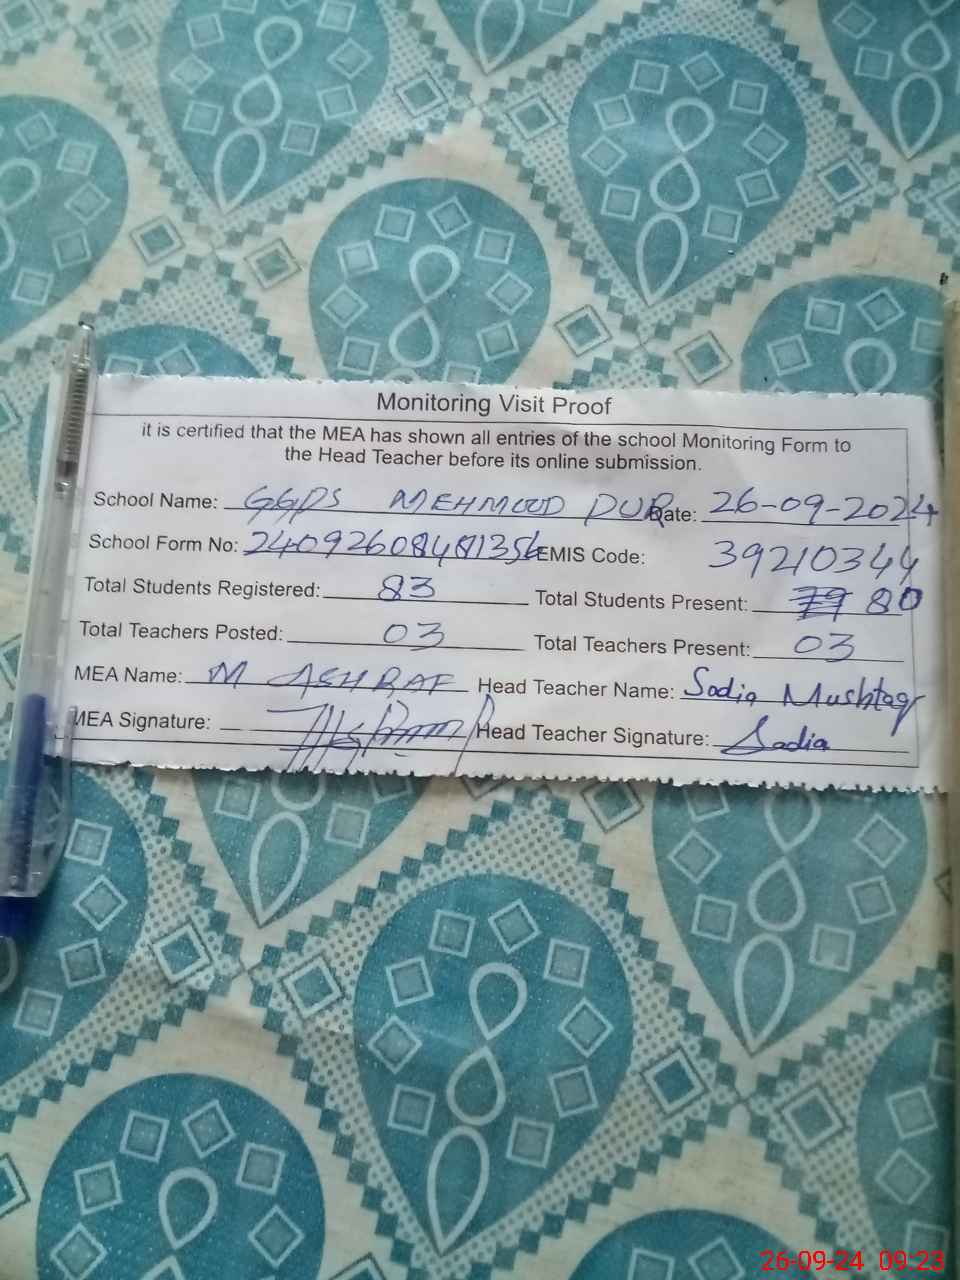 Monitoring Visit Proof
it is certified that the MEA has shown all entries of the school Monitoring Form to
the Head Teacher before its online submission.
School Name: GGPS MEHMOOD PUR Date: 26-09-2024
School Form No: EMIS Code: 39210344
Total Students Registered: 83 Total Students Present: 80
Total Teachers Posted: 03 Total Teachers Present: 03
MEA Name: M ASHRAF Head Teacher Name: Sadia Mushtaq
MEA Signature: Head Teacher Signature: Sadia
26-09-24 09:23